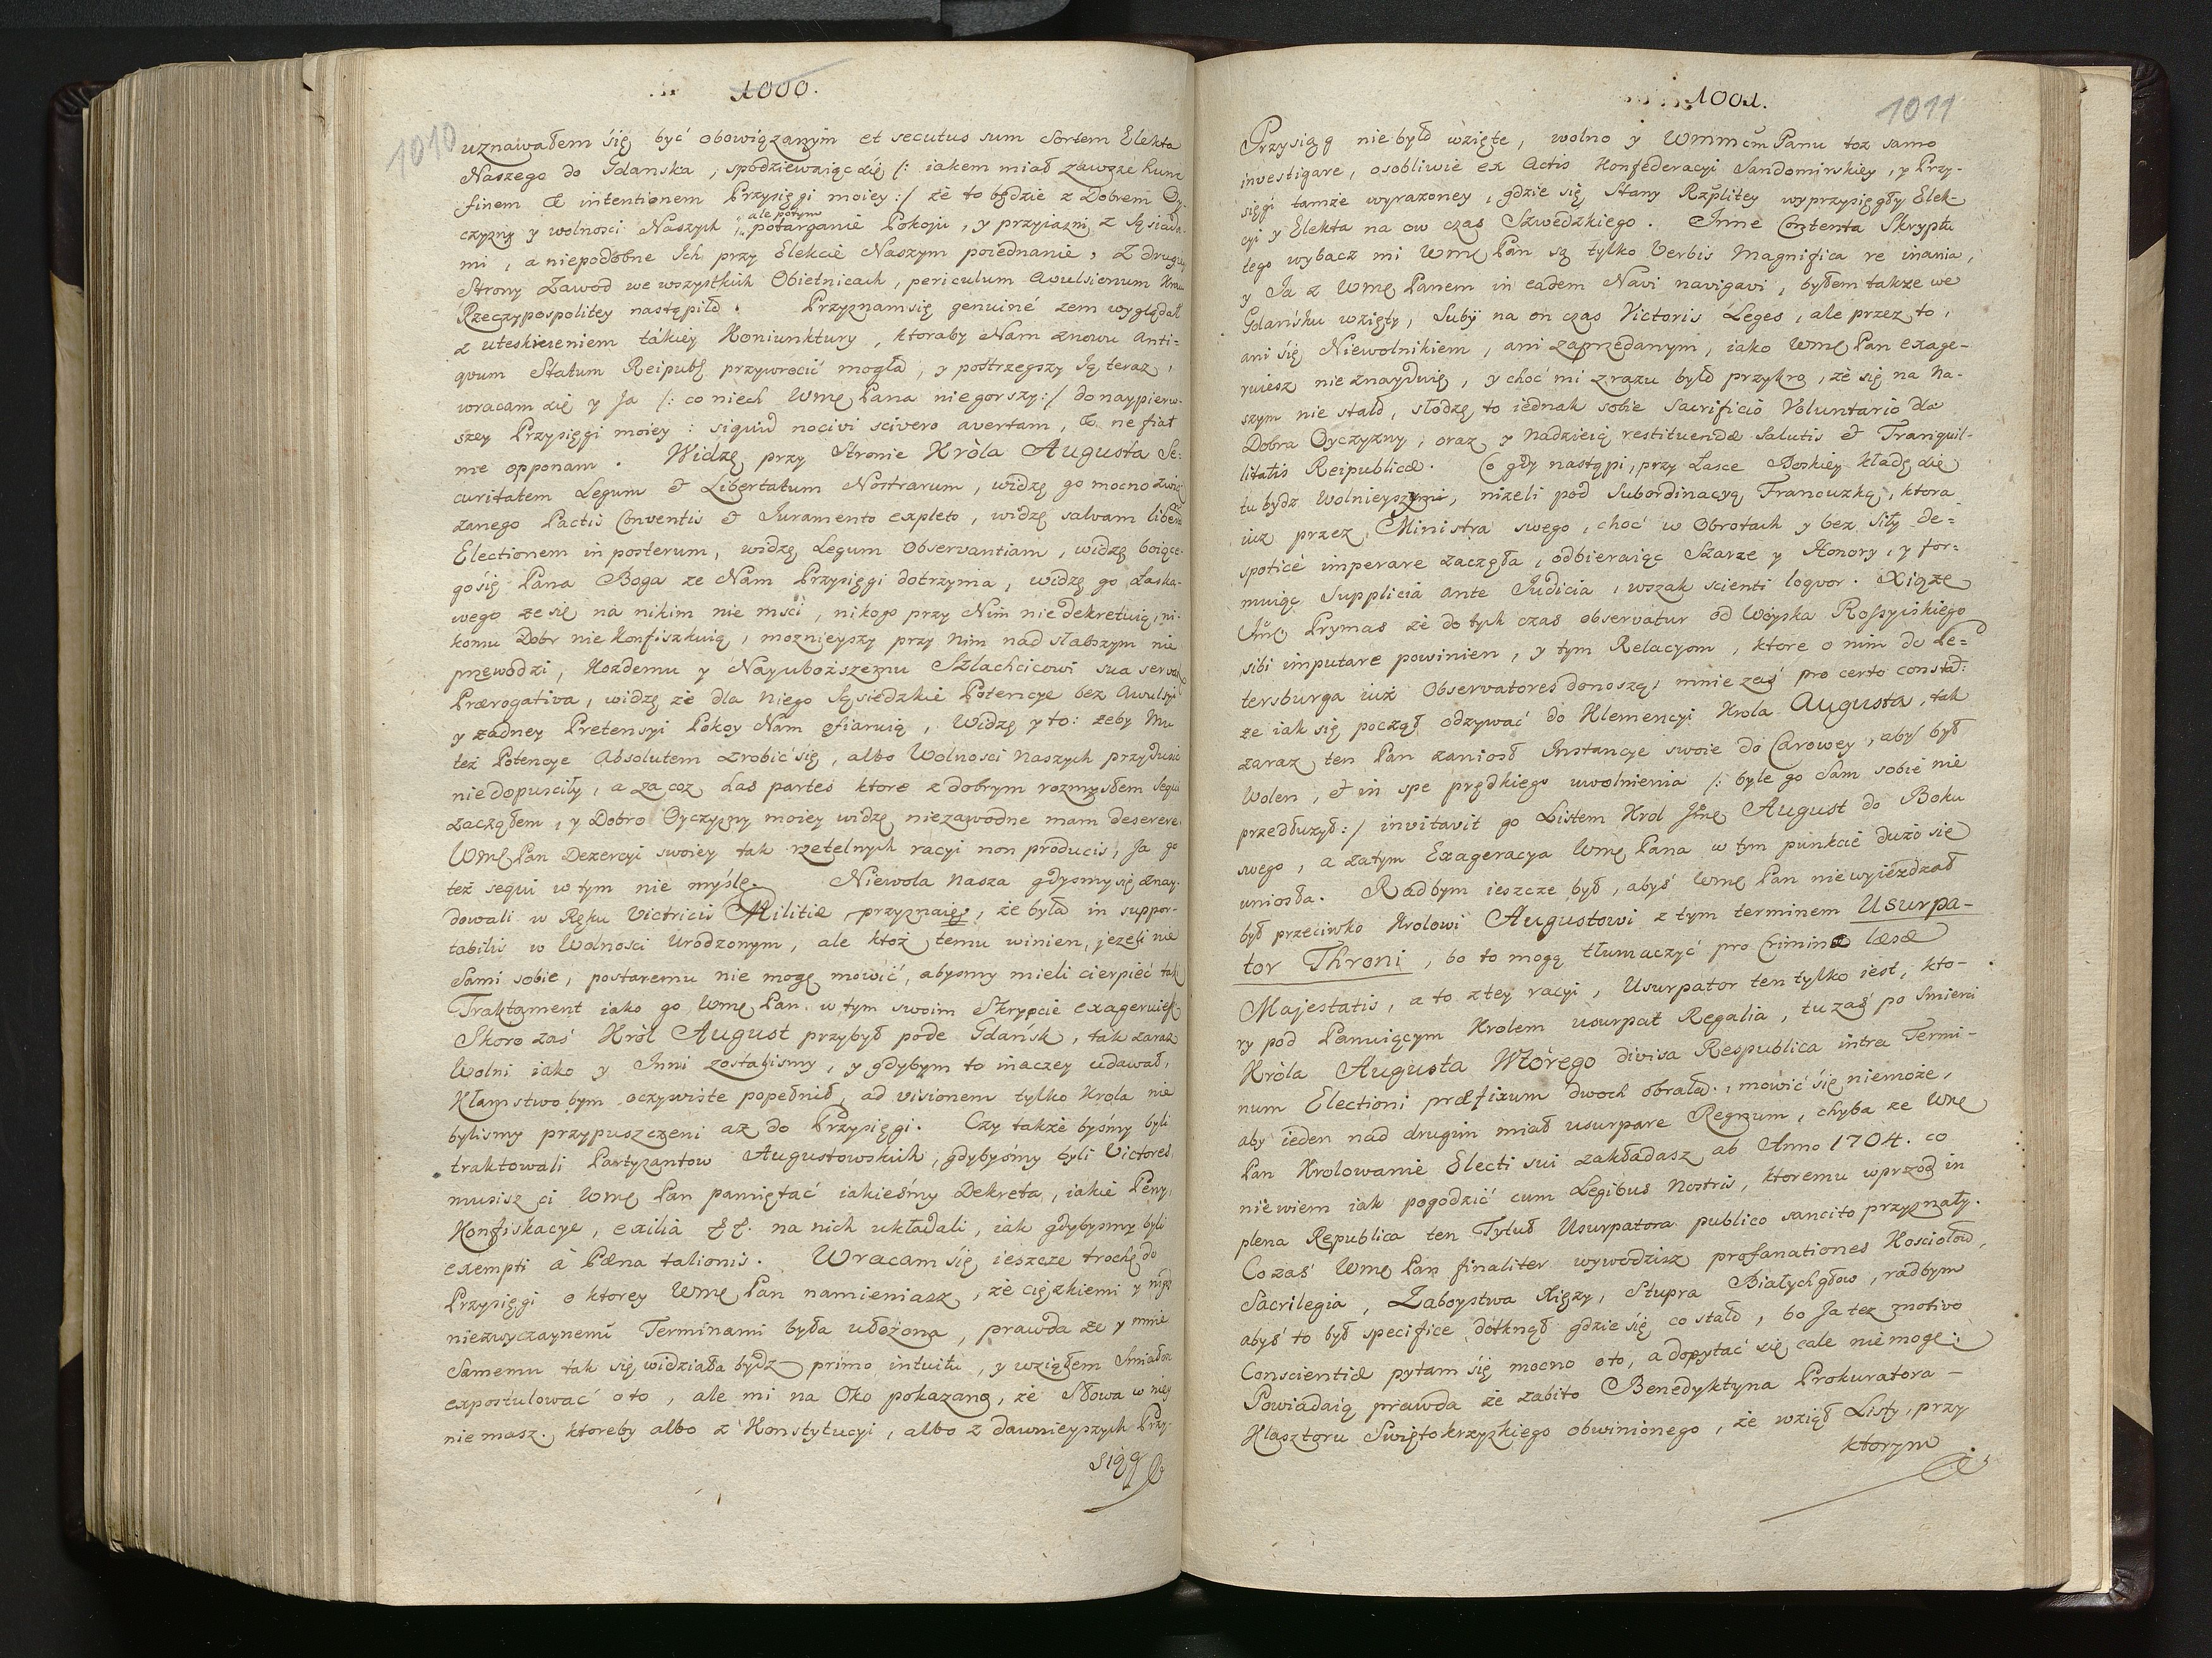 1000.
1010
uznawałem się być obowiązanym et secutus sum sortem Elekta
Naszego do Gdanska, spodziewaiąc się /: iakem miał zawsze hunc
finem & intentionem Przysięgi moiey :/ że to będzie z Dobrem Oy-
czyzny y wolnosci Naszych, ale potym potarganie Pokoju, y przyiazni z Sąsiada-
mi, a niepodobne Ich przy Elekcie Naszym poiednanie, z drugiey
Strony Zawod we wszystkich Obietnicach, periculum avulsionum
Rzeczypospolitey nastąpiło. Przyznam się genuiné zem wyglądał
z utesknieniem takiey Koniunktury, ktoraby Nam znowu anti-
quum Statum Reipubl przywrocić mogła, y postrzegszy Ją teraz,
wracam się y Ja /: co niech Wme Pana niegorszy :/ do naypierw-
szey Przysięgi moiey: siquid nocivi scivero avertam, & ne fiat
me opponam. Widzę przy Stronie Króla Augusta Se-
curitatem Legum & Libertatum Nostrarum, widzę go mocno zwią-
zanego Pactis Conventis & Juramento expleto, widzę salvam liberam
Electionem in posterum, widzę Legum Observantiam, widzę boiące-
go się Pana Boga ze Nam Przysięgi dotrzyma, widzę go Łaska-
wego ze się na nikim nie msci, nikogo przy Nim nie dekretuią, ni-
komu Dobr nie Konfiszkuią, moznieyszy przy Nim nad słabszym nie
przewodzi, Kozdemu y Nayuboższemu Szlachcicowi sua servatur
Prærogativa, widzę że dla Niego Sąsiedzkie Potencye bez Avulsyi
y zadney Pretensyi Pokoy Nam ofiaruią, Widzę y to: zeby Mu
też Potencye Absolutem zrobić się, albo Wolnosci Naszych przydusić
niedopuscily, a za coz Las partes ktore z dobrym rozmysłem sequi
zacząłem, y Dobro Oyczyzny moiey widzę niezawodne mam deserere.
Wme Pan Dezercyi swoiey tak rzetelnych racyi non producis, Ja go
też sequi w tym nie myślę. Niewola nasza gdysmy się znay-
dowali w Ręku victricis Militiæ przyznaię, że była in suppor-
tabilis w Wolnosci Urodzonym, ale ktoż temu winien, jezeli nie
Sami sobie, postaremu nie mogę mowić, abysmy mieli cierpieć taki
Traktament iako go Wme Pan w tym swoim Skrypcie exageruiesz
Skoro zaś Król August przybył pode Gdańsk, tak zaraz
Wolni iako y Inni zostalismy, y gdybym to inaczey udawał,
Kłamstwo bym oczywiste popełnił, ad visionem tylko Krola nie
bylismy przypuszczeni aż do Przysięgi. Czy także byśmy byli
traktowali Partyzantow Augustowskich, gdybyśmy byli Victores,
musisz ci Wme Pan pamiętać iakieśmy Dekreta, iakie Peny
Konfiskacye, exilia &c. na nich układali, iak gdybysmy byli
exempti à Pœna talionis. Wracam się ieszcze trochę do
Przysięgi o ktorey Wme Pan namieniasz, że cięzkiemi y nigdy
niezwyczaynemi Terminami była ułożona, prawda że y mnie
Samemu tak się widziała bydz primo intuitu, y wziąłem Smiałosc
expostulować o to, ale mi na Oko pokazano, że słowa w niey
nie masz. ktoreby albo z Konstytucyi, albo z dawnieyszych Przy-
siąg
1001.
1011
Przysiąg nie było wzięte, wolno y Wmmcm Panu toz samo
investigare, osobliwie ex Actis Konfederacyi Sandomirskiey, y Przy-
sięgi tamże wyrazoney, gdzie się Stany Rzplitey wyprzysięgły Elek-
cyi y Elekta na ow czas Szwedzkiego. Inne Contenta Skryptu
tego wybacz mi Wme Pan są tylko Verbis Magnifica re inania,
y Ja z Wme Panem in eadem Navi navigavi, byłem takze we
Gdańsku wzięty, Subij na on czas Victoris Leges, ale przez to,
ani się Niewolnikiem, ani zaprzedanym, iako Wme Pan exage-
ruiesz nie znayduię, y choć mi zrazu było przykro, że się na Na-
szym nie stało, słodzę to iednak sobie Sacrificio Voluntario dla
Dobra Oyczyzny, oraz y Nadzieią restituendæ Salutis & Tranquil-
litatis Reipublicæ. Co gdy nastąpi, przy Łasce Boskiey kładę się
tu bydz Wolnieyszym, niżeli pod Subordinacyą Francuzką, ktora
iuz przez Ministra swego, choć w Obrotach y bez siły de-
spoticè imperare zaczęła, odbieraiąc Szarze y Honory, y for-
muiąc Supplicia ante Judicia, wszak scienti loquor. Xiąże
Jme Prymas że do tych czas observatur od Woyska Rossyiskiego
sibi imputare powinien, y tym Relacyom, ktore o nim do Pe-
tersburga iuż Observatores donoszą, mnie zaś pro certo constat:
ze iak się począł odzywać do Klemencyi Krola Augusta, tak
zaraz ten Pan zaniosł Instancye swoie do Carowey, aby był
Wolen, & in spe prędkiego uwolnienia /: byle go Sam sobie nie
przedłuzył :/ invitavit go Listem Krol Jme August do Boku
swego, a zatym Exageracya Wme Pana w tym punkcie dużo się
uniosła. Radbym ieszcze był, abyś Wme Pan niewyiezdzał
był przeciwko Krolowi Augustowi z tym terminem Usurpa-
tor Throni, bo to mogą tłumaczyć pro Crimine læsæ
Majestatis, a to z tey racyi, Usurpator ten tylko iest, kto-
ry pod Panuiącym Krolem usurpat Regalia, tu zaś po Smierci
Króla Augusta Wtórego divisa Respublica intra Termi-
num Electioni præfixum dwoch obrała, mowić się niemoże,
aby ieden nad drugim miał usurpare Regnum, chyba ze Wme
Pan Krolowanie Electi sui zakładasz ab Anno 1704. co
niewiem iak pogodzić cum Legibus Nostris, ktoremu wprzod in
plena Republica ten Tytuł Usurpatora publico sancito przyznały.
Co zaś Wme Pan finaliter wywodzisz profanationes Kosciołow,
Sacrilegia, Zaboystwa Xięzy, Stupra Białychgłow, radbym
abyś to był specifice dotknął gdzie się co stało, bo Ja tez motivo
Conscientiæ pytam się mocno o to, a dopytać się cale niemogę;
Powiadaią prawda że zabito Benedyktyna Prokuratora
Klasztoru Swiętokrzyzkiego obwinionego, że wziął Listy, przy
ktorym